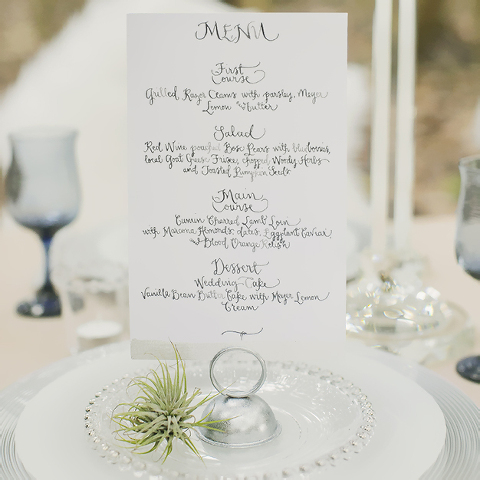 MENU
First
Course
Grilled Razor Clams with parsley, Meyer
Lemon & butter
Salad
Red Wine poached Bosc Pears with blueberries,
local Goat Cheese Frisee, chopped Woody Herbs
and Toasted Pumpkin Seeds
Main
Course
Cumin Charred Lamb Loin
with Marcona Almonds, dates, Eggplant Caviar
& Blood Orange Relish
Dessert
Wedding Cake
Vanilla Bean Butter Cake with Meyer Lemon
Cream